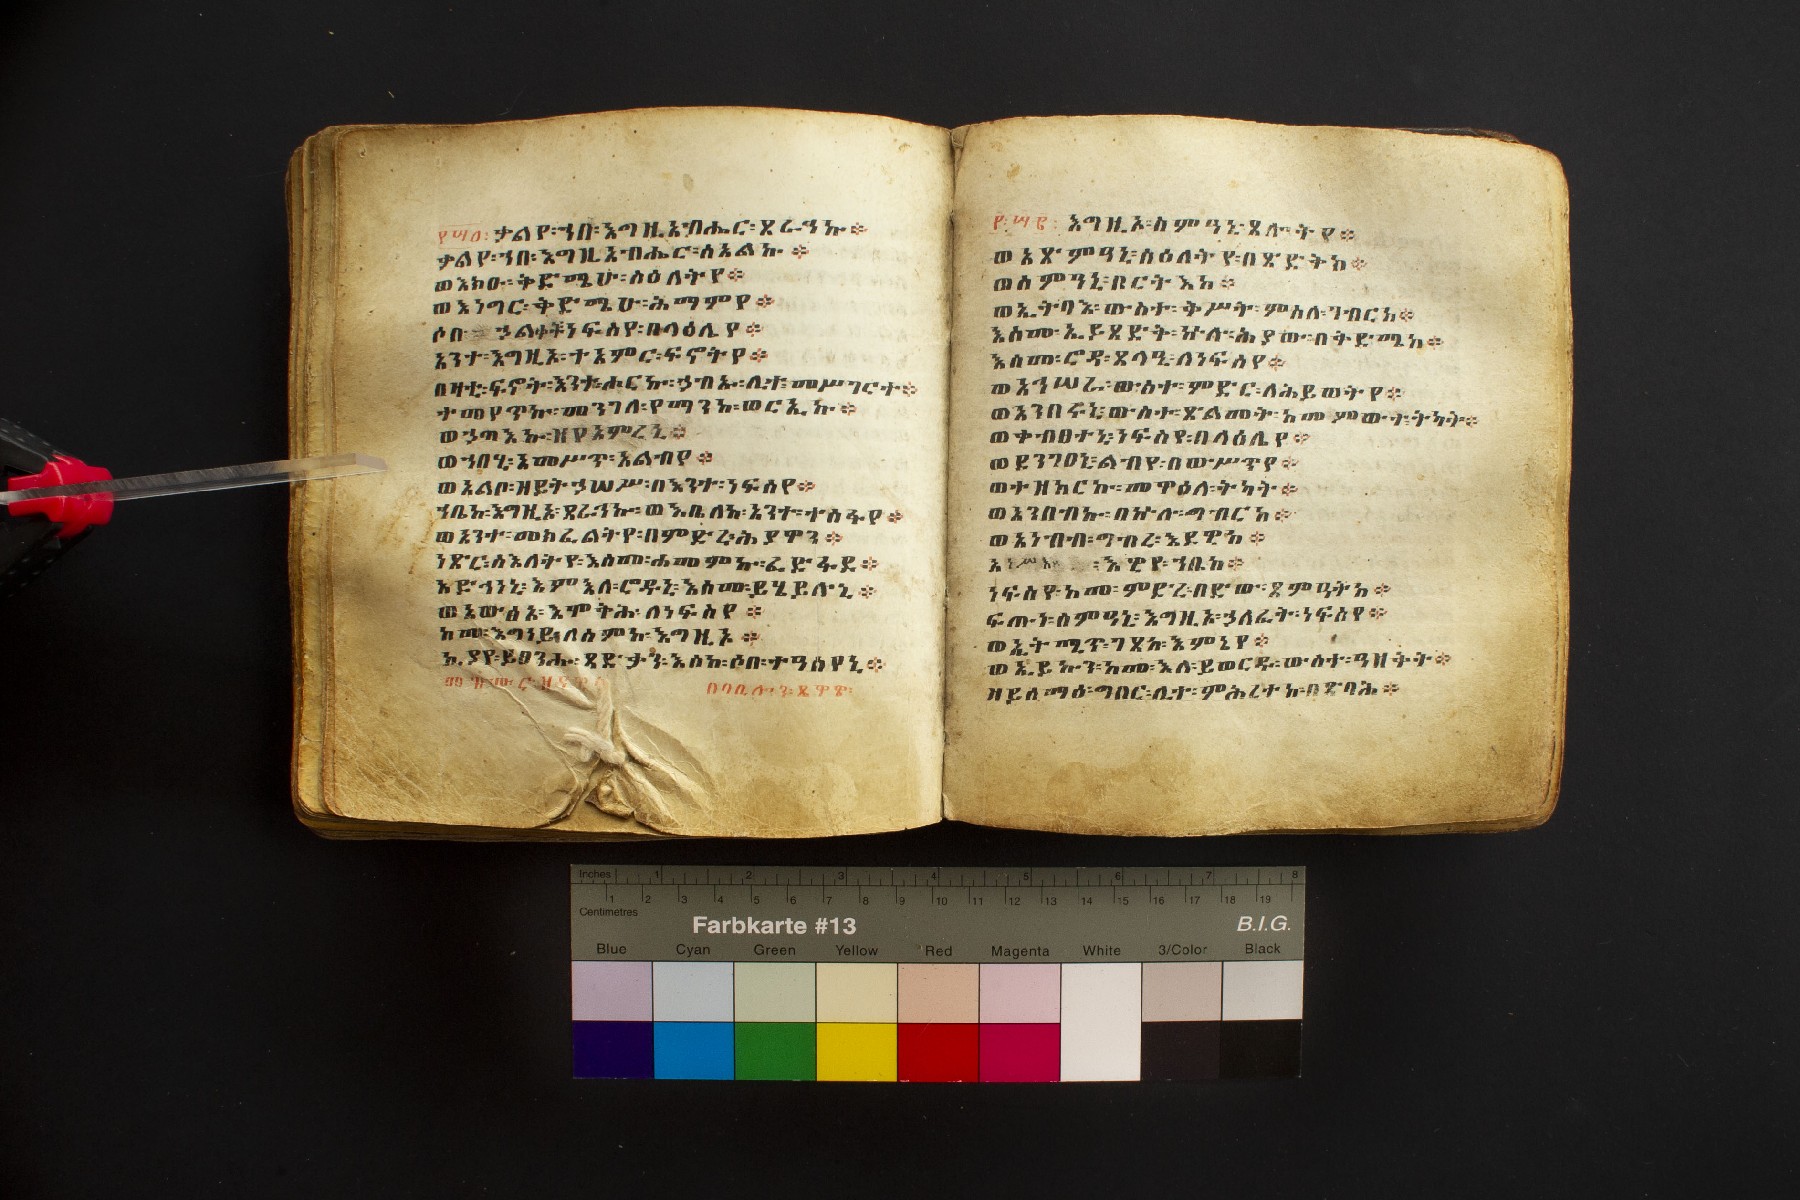 ቃልየ፡ኀበ፡እግዚአብሔር፡ጸራኅኩ፨
ቃልየ፡ኀበ፡እግዚአብሔር፡ሰአልኩ፨
ወእክዑ፡ቅድሜሁ፡ስዕለትየ፨
ወእነግር፡ቅድሜሁ፡ሕማምየ፨
ሶበ፡ኃልቀት፡ነፍስየ፡በላዕሌየ፨
አንተ፡እግዚኦ፡ተአምር፡ፍኖትየ፨
በዛቲ፡ፍኖት፡እንተ፡ሖርኩ፡ኃብኡ፡ሊተ፡መሥገርተ፨
ተመየጥኩ፡መንገለ፡የማንኩ፡ወርኢኩ፨
ወኃጣእኩ፡ዘየአምረኒ፨
ወኀበሂ፡አመሥጥ፡አልብየ፨
ወአልቦ፡ዘይትኃሠሥ፡በእንተ፡ነፍስየ፨
ኀቤከ፡እግዚኦ፡ጸራኅኩ፡ወእቤለከ፡አንተ፡ተስፋየ፨
ወአንተ፡መክፈልትየ፡በምድረ፡ሕያዋን፨
ነጽር፡ስእለትየ፡እስመ፡ሐመምኩ፡ፈድፋደ፨
አድኅነኒ፡እምእለ፡ሮዱኒ፡እስመ፡ይሄይሉኒ፨
ወአውፅኣ፡እሞትሕ፡ለነፍስየ፨
ከመ፡እግነይ፡ለስምከ፡እግዚኦ፨
ኪያየ፡ይፀንሑ፡ጻድቃን፡እስከ፡ሶበ፡ተዓስየኒ፨
በባቢሎን፡
እግዚኦ፡ስምዓኒ፡ጸሎትየ፨
ወአጽምዓኒ፡ስዕለትየ፡በጽድትከ፨
ወስምዓኒ፡በርትእከ፨
ወኢትባእ፡ውስተ፡ቅሥት፡ምስለ፡ገብርከ፨
እስመ፡ኢይጸድት፡ኵሉ፡ሕያው፡በቅድሜከ፨
እስመ፡ሮዳ፡ጸላዒ፡ለነፍስየ፨
ወአኅሠራ፡ውስተ፡ምድር፡ለሕይወትየ፨
ወአንበሩኒ፡ውስተ፡ጽልመት፡ከመ፡ምውተ፡ትካት፨
ወቀብፀተኒ፡ነፍስየ፡በላዕሌየ፨
ወደንገፀኒ፡ልብየ፡በውሥጥየ፨
ወተዘከርኩ፡መዋዕለ፡ትካት፨
ወአንበብኩ፡በኵሉ፡ግብርከ፨
ወአነብብ፡ግብረ፡እደዊከ፨
አነሣእኩ፡እዴየ፡ኀቤከ፨
ነፍስየ፡ከመ፡ምድረ፡በድው፡ጸምዓትከ፨
ፍጡነ፡ስምዓኒ፡እግዚኦ፡ኃለፈት፡ነፍስየ፨
ወኢትሚጥ፡ገጸከ፡እምኔየ፨
ወኢይኩን፡ከመ፡እለ፡ይወርዱ፡ውስተ፡ዓዘትት፨
ዘይሰማዕ፡ግበር፡ሊተ፡ምሕረተከ፡በጽባሕ፨
Inches 1 2 3 4 5 6 7 8
1 2 3 4 5 6 7 8 9 10 11 12 13 14 15 16 17 18 19
Centimetres
Farbkarte #13 B.I.G.
Blue Cyan Green Yellow Red Magenta White 3/Color Black